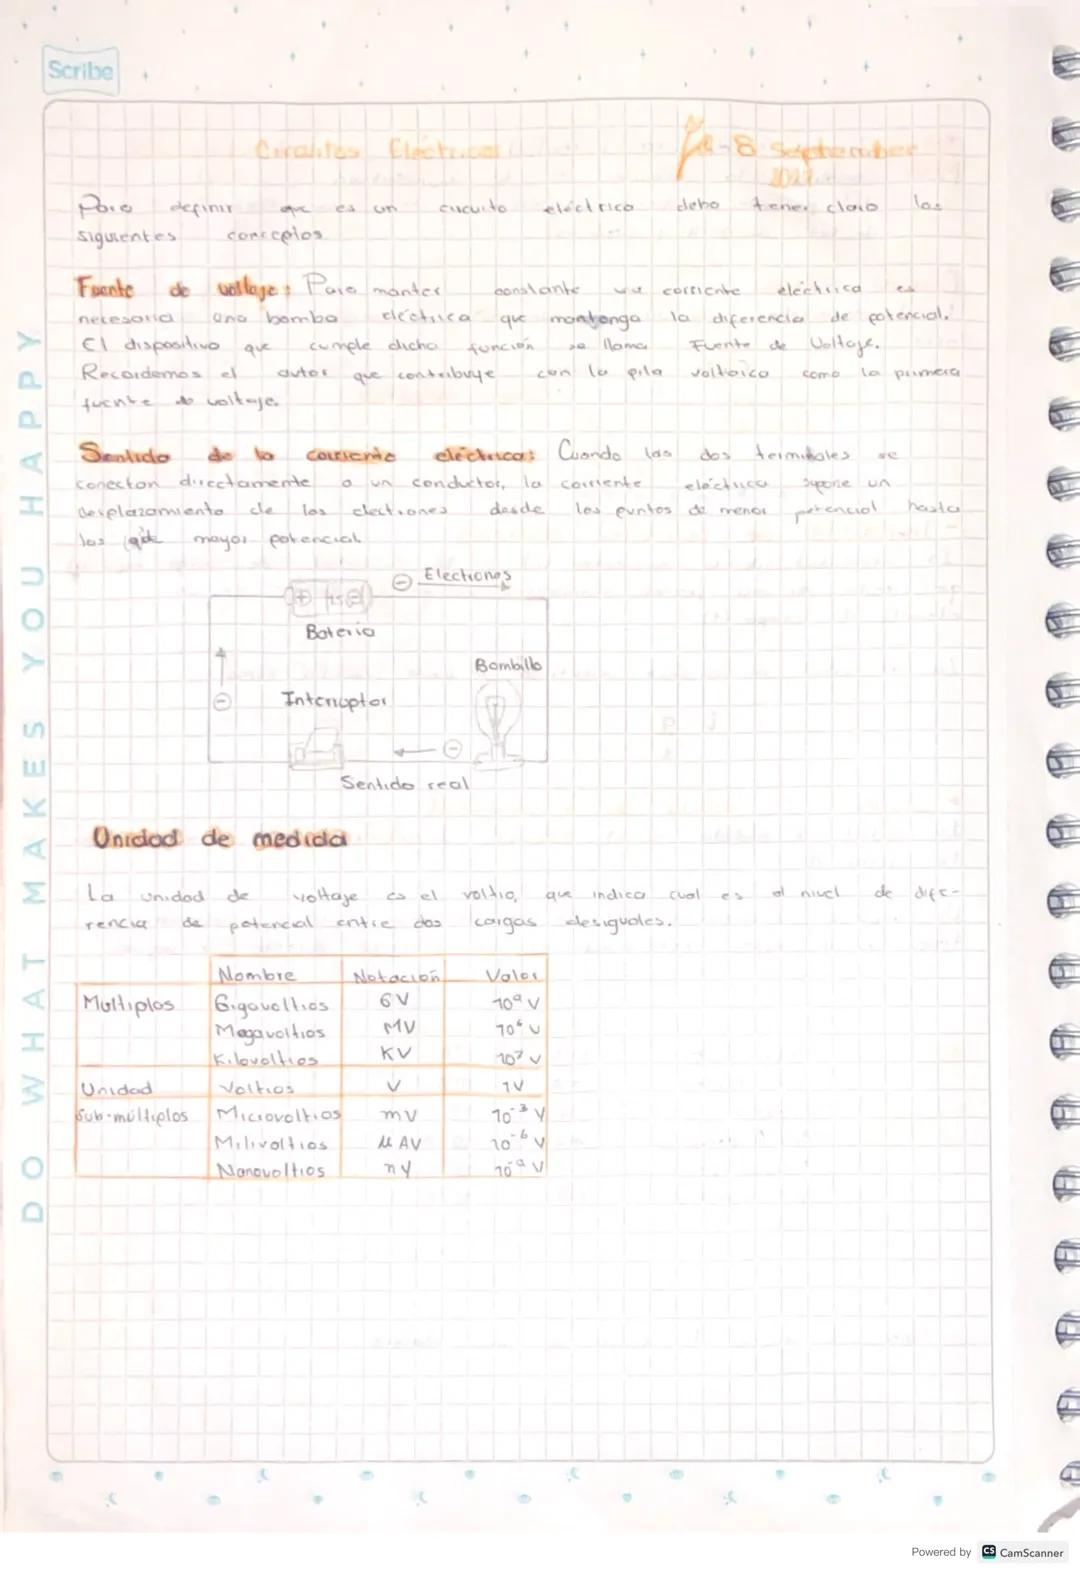 Scribe
Circuitos Eléctricos
8 September
Para definir que es un circuito eléctrico debo tener claro los
siguientes conceptos
Fuente de voltaje: Para mantener constante una corriente eléctrica es
necesaria una bomba eléctrica que mantenga la diferencia de potencial.
El dispositivo que cumple dicha función se llama Fuente de Voltaje.
Recordemos el autor que contribuye con la pila voltaica como la primera
fuente de voltaje.
Sentido de la corriente eléctrica: Cuando los dos terminales se
conectan directamente a un conductor, la corriente eléctrica supone un
desplazamiento de los electrones desde los puntos de menor potencial hasta
los de mayor potencial
Electrones
Batería
Bombillo
Interruptor
Sentido real
Unidad de medida
La unidad de voltaje es el voltio, que indica cual es el nivel de dife-
rencia de potencial entre dos cargas desiguales.
Nombre Notación Valor
Múltiplos Gigavoltios GV 10⁹ V
Megavoltios MV 10⁶ V
Kilovoltios KV 10³ V
Unidad Voltios V 1V
Sub-múltiplos Microvoltios mV 10⁻³ V
Milivoltios µAV 10⁻⁶ V
Nanovoltios nV 10⁻⁹ V
DO WHAT MAKES YOU HAPPY
Powered by CS CamScanner